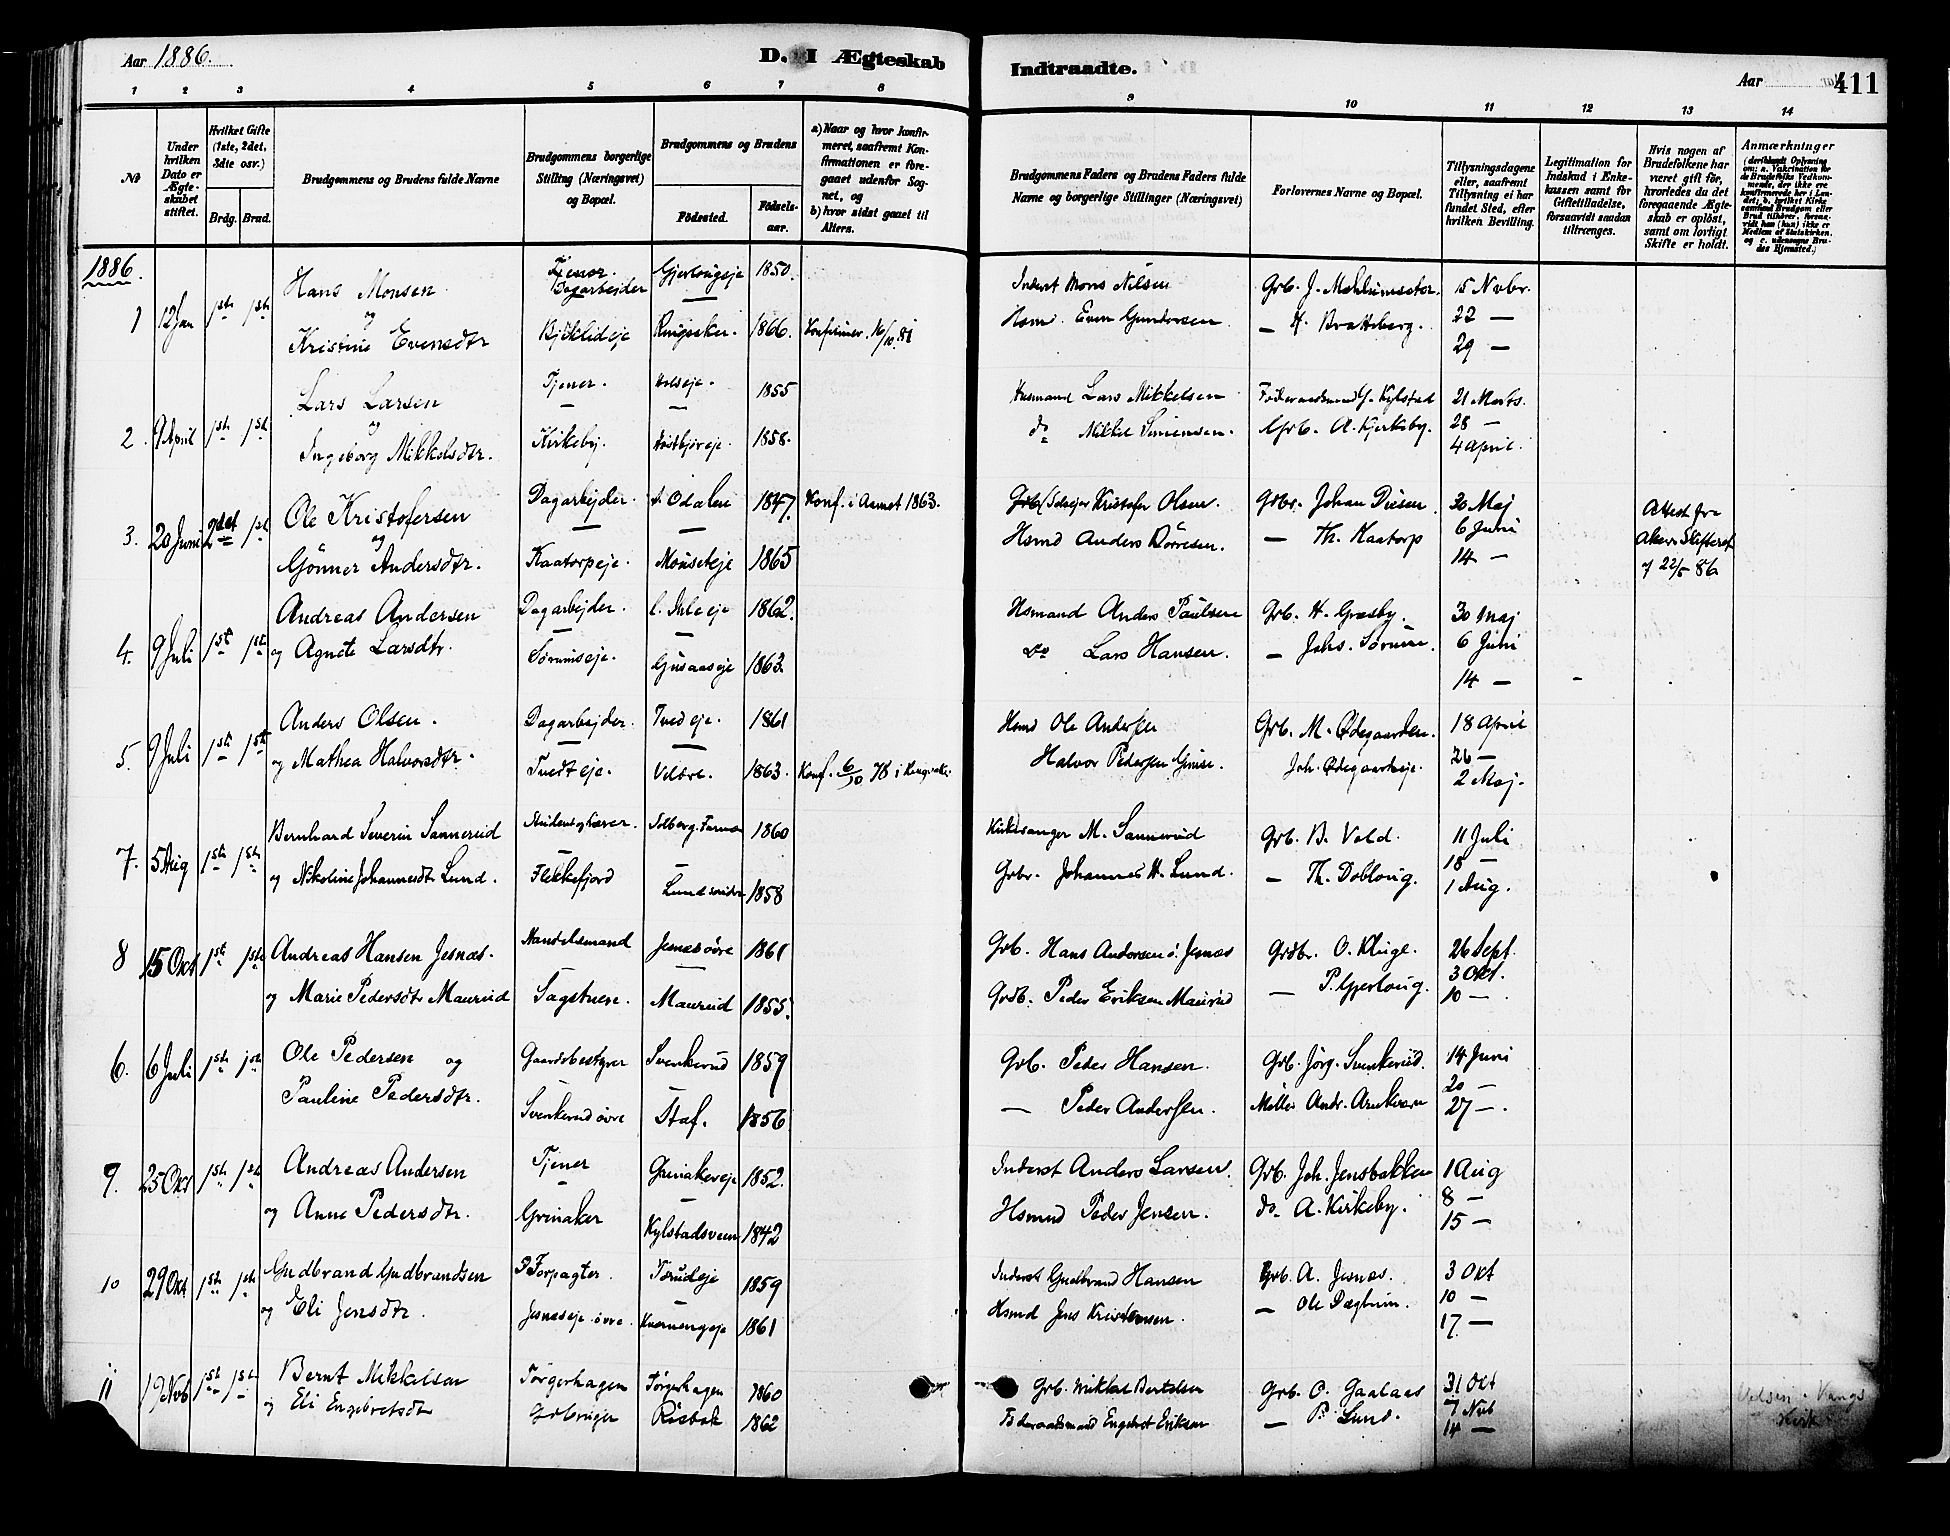 Aar 1886.
D. I Ægteskab
Indtraadte.
Aar
411
1 2 3 4 5 6 7 8
9 10 11 12 13 14
No
Under hvilken Dato er Ægteskabet stiftet.
Hvilket Gifte (1ste, 2det, 3die osv.)
Brdg. Brud.
Brudgommens og Brudens fulde Navne
Brudgommens borgerlige Stilling (Næringsvei) og Bopæl.
Brudgommens og Brudens
Fødested.
Fødselsaar.
a) Naar og hvor konfirmeret, saafremt Konfirmationen er foregaaet udenfor Sognet, og
b) hvor sidst gaaet til Alters.
Brudgommens Faders og Brudens Faders fulde Navne og borgerlige Stillinger (Næringsvei)
Forlovernes Navne og Bopæl.
Tillysningsdagene eller, saafremt Tillysning ei har fundet Sted, efter hvilken Bevilling.
Legitimation for Indskud i Enkekassen samt for Giftetilladelse, forsaavidt saadan tiltrænges.
Hvis nogen af Brudefolkene har været gift før, hvorledes da det foregaaende Ægteskab er opløst, samt om lovligt Skifte er holdt.
Anmærkninger
1886.
1 12 Jan 1ste 1ste Hans Monsen Tjener. Dagarbejder Gjerlougeje 1850. Inderst Mons Nilsen Grb. J. Mehlumseter. 15 Nvbr.
og Kristine Evensdtr Bjøklideje Ringsaker. 1866. Konfirmer. 16/10 81 Hsm. Even Gundersen — H. Bratberg. 22 —
29 —
2. 9 April 1ste 1ste Lars Larsen Tjener. 1855 Husmand Lars Mikkelsen Kylstad 21 Marts.
og Ingeborg Mikkelsdtr. Kirkeby. 1858. do Mikkel Simensen. Grb. A. Kjerkeby. 28 —
4 April.
3. 20 Juni 2det 1ste Ole Kristofersen Dagarbejder. s. Odalen 1847. Konf. i Aasnes 1863. Kristofer Olsen. Grbr. Johan Diesen 30 Maj Attest fra
og Gønner Andersdtr. Kaatorpeje. 1865 Hsmd Anders — Th. Kaatorp 6 Juni Akers Skifteret
14 — af 22/5 86
4. 9 Juli 1ste 1ste Andreas Andersen Dagarbejder. l. Ihleeje 1862. Hsmand Anders Paulsen Grb. H. Græsby. 30 Maj
og Agnete Larsdtr. Sørumseje. Gusaaseje 1863. do Lars Hansen. — Johs. Sørum. 6 Juni
14 —
5. 9 Juli 1ste 1ste Anders Olsen. Dagarbejder. Tvedeje. 1861 Hsmd Ole Andersen Grb. M. Ødegaarden. 18 April
og Mathea Halvorsdtr. Tvedteje. Veldre. 1863. Konf. 6/10 78 i Ringsaker. Halvor Pedersen Joh. Ødegaardseje. 26 —
2 Maj.
7. 5 Aug 1ste 1ste Bernhard Severin Sannerud Solberg. 1860 Kirkesanger M. Sannerud Grb. B. Vold. 11 Juli
og Nikoline Johannesdtr Lund. Flekkefjord 1858 Grbr. Johannes H. Lund. — Th. Dobloug. 18 —
1 Aug.
8 15 Okt 1ste 1ste Andreas Hansen Jesnæs. Handelsmand Jesnæs øvre 1861 Grb. Hans Andersen ø. Jesnæs Grdbr. O. Kluge. 26 Sept.
og Marie Pedersdtr Maurud Sagstuen. Maurud 1855. Grdb. Peder Eriksen Maurud — P. Gjerloug. 3 Okt.
10 —
6. 6 Juli 1ste 1ste Ole Pedersen og Gaardsbestyrer Svenkerud 1859 Grb. Peder Hansen. Grb. Jørg. Svenkerud. 14 Juni
Pauline Pedersdtr. Svenkerud øvre Staf. 1856 — Peder Andersen. Møller Andr. Arnkværn 20 —
27 —
9. 25 Okt 1ste 1ste Andreas Andersen Tjener Grinakereje 1852. Inderst Anders Larsen. Grb. Joh. Jensbakken 1 Aug
og Anne Pedersdtr. Grinaker Kylstadsveen 1842 Hsmnd Peder Jensen. do A. Kirkeby. 8 —
15 —
10 29 Okt 1ste 1ste Gudbrand Gudbrandsen Forpagter. Torudeje 1859 Inderst Gudbrand Hansen Grb. A. Jesnæs. 3 Okt
og Eli Jensdtr. Jesnæseje øvre. Kværnengeje 1861 Hsmd Jens Kristensen. — Ole Dæghrin. 10 —
17 —
11 19 Nvb 1ste 1ste Bernt Mikkelsen Torgerhagen Torgerhagen 1860 Grb. Mikkel Berntsen Grb. O. Gaalaas 31 Okt Vielsen i Vangs
og Eli Engebretsdtr Grdbruger Risbak 1862 Føderaadsmand Engebret Eriksen — P. Lund. 7 Nvb Kirke
14 —